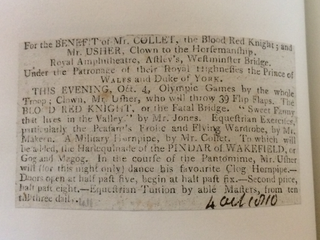 For the BENEFIT of Mr. COLLET, the Blood Red Knight; and
Mr. USHER, Clown to the Horsemanship.
Royal Amphitheatre, Astley's, Westminster Bridge.
Under the Patronage of their Royal Highnesses the Prince of
WALES and DUKE of YORK.
THIS EVENING, Oct. 4, Olympic Games by the whole
Troop; Clown, Mr. Usher, who will throw 39 Flip Flaps. The
BLOOD RED KNIGHT, or the Fatal Bridge. "Sweet Fanny
that lives in the Valley," by Mr. Jones. Equestrian Exercises,
particularly the Peasant's Frolic and Flying Wardrobe, by Mr.
Makeen. A Military Hornpipe, by Mr. Collet. To which will
be added, the Harlequinade of the PINDAR of WAKEFIELD, or
Gog and Magog. In the course of the Pantomime, Mr. Usher
will (for this night only) dance his favourite Clog Hornpipe.—
Doors open at half past five, begin at half past six.—Second price,
half past eight.—Equestrian Tuition by able Masters, from ten
till three daily.
4 Oct 1810